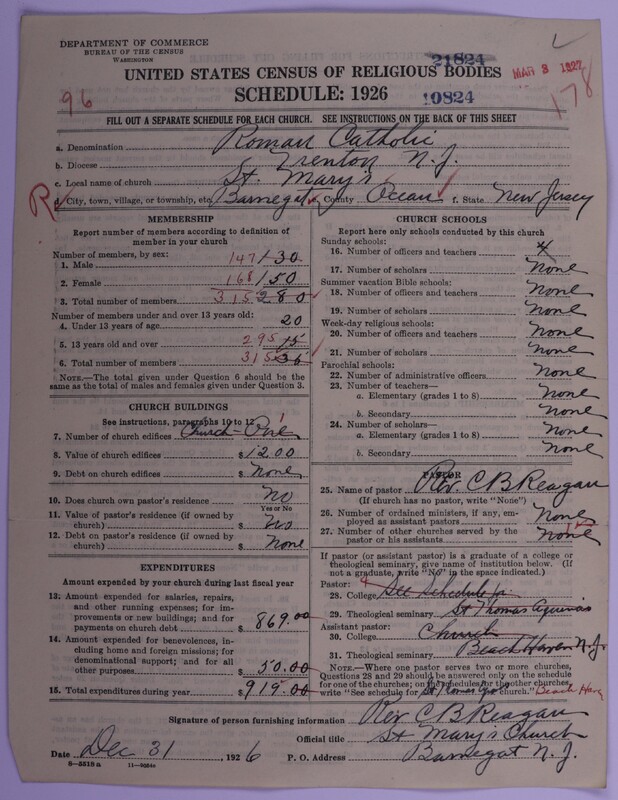 DEPARTMENT OF COMMERCE
BUREAU OF THE CENSUS
WASHINGTON
21824
MAR 3 1927
UNITED STATES CENSUS OF RELIGIOUS BODIES
SCHEDULE: 1926
96
10824
178
FILL OUT A SEPARATE SCHEDULE FOR EACH CHURCH. SEE INSTRUCTIONS ON THE BACK OF THIS SHEET
a. Denomination Roman Catholic
b. Diocese Trenton N.J.
c. Local name of church St. Mary's
R d. City, town, village, or township, etc. Barnegat County Ocean f. State New Jersey
MEMBERSHIP
Report number of members according to definition of
member in your church
Number of members, by sex:
1. Male 147 130
2. Female 168 150
3. Total number of members 315 280
Number of members under and over 13 years old:
4. Under 13 years of age 20
5. 13 years old and over 295 15
6. Total number of members 315 35
NOTE.—The total given under Question 6 should be the
same as the total of males and females given under Question 3.
CHURCH BUILDINGS
See instructions, paragraphs 10 to 12
7. Number of church edifices Church One 1
8. Value of church edifices $ 1200
9. Debt on church edifices $ None
10. Does church own pastor's residence No
Yes or No
11. Value of pastor's residence (if owned by
church) $ No
12. Debt on pastor's residence (if owned by
church) $ None
EXPENDITURES
Amount expended by your church during last fiscal year
13. Amount expended for salaries, repairs,
and other running expenses; for im-
provements or new buildings; and for
payments on church debt $ 869.00
14. Amount expended for benevolences, in-
cluding home and foreign missions; for
denominational support; and for all
other purposes $ 50.00
15. Total expenditures during year $ 919.00
CHURCH SCHOOLS
Report here only schools conducted by this church
Sunday schools:
16. Number of officers and teachers 4
17. Number of scholars None
Summer vacation Bible schools:
18. Number of officers and teachers None
19. Number of scholars None
Week-day religious schools:
20. Number of officers and teachers None
21. Number of scholars None
Parochial schools:
22. Number of administrative officers None
23. Number of teachers—
a. Elementary (grades 1 to 8) None
b. Secondary None
24. Number of scholars—
a. Elementary (grades 1 to 8) None
b. Secondary None
PASTOR
25. Name of pastor Rev. C B Reagan
(If church has no pastor, write "None")
26. Number of ordained ministers, if any, em-
ployed as assistant pastors None
27. Number of other churches served by the
pastor or his assistants None
If pastor (or assistant pastor) is a graduate of a college or
theological seminary, give name of institution below. (If
not a graduate, write "No" in the space indicated.)
Pastor:
28. College See Schedule for
29. Theological seminary St Thomas Aquinas
Assistant pastor:
30. College Church
31. Theological seminary Beach Haven N.J.
NOTE.—Where one pastor serves two or more churches,
Questions 28 and 29 should be answered only on the schedule
for one of the churches; on the schedules for the other churches,
write "See schedule for church." Beach Haven
Signature of person furnishing information Rev C B Reagan
Official title St Mary's Church
Date Dec 31 1926 P. O. Address Barnegat N.J.